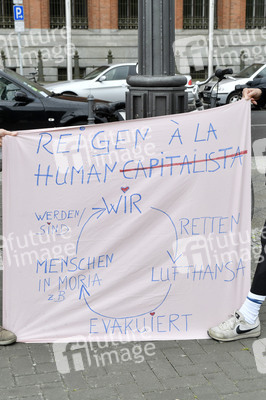 REIGEN À LA
HUMAN CAPITALISTA
WIR
WERDEN
SIND
RETTEN
MENSCHEN
IN MORIA
z.B
LUFTHANSA
EVAKUIERT
future
image